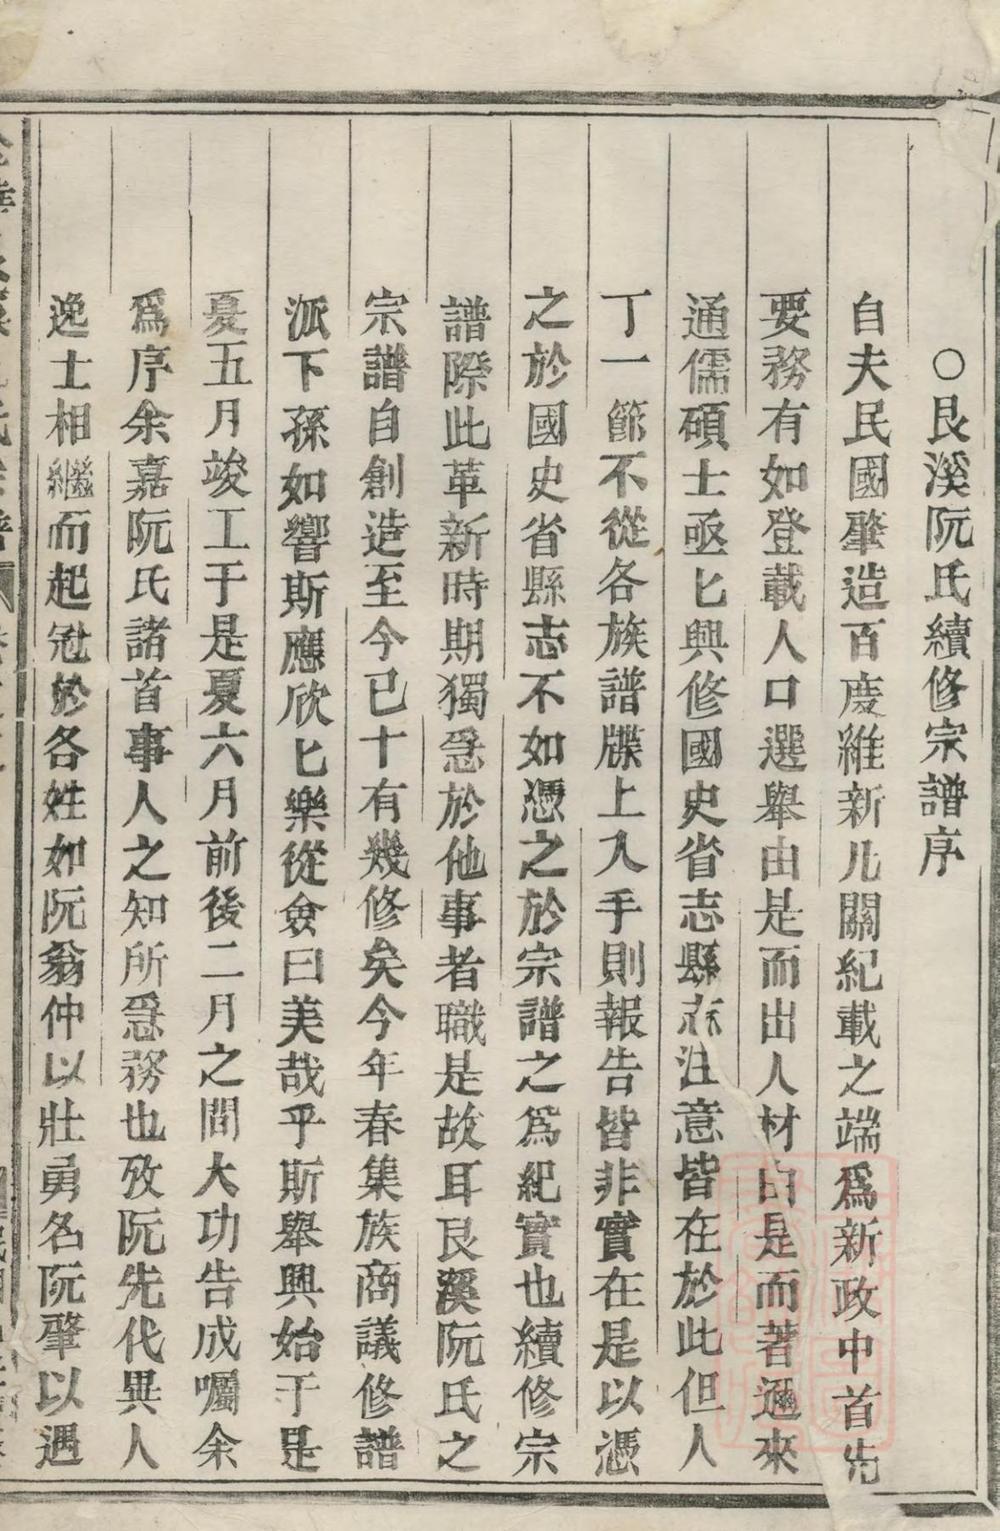 ○艮溪阮氏續修宗譜序
自夫民國肇造百度維新凡關紀載之端爲新政中首先
要務有如登載人口選舉由是而出人材由是而著邇來
通儒碩士亟匕興修國史省志縣志注意皆在於此但人
丁一節不從各族譜牒上入手則報告皆非實在是以憑
之於國史省縣志不如憑之於宗譜之爲紀實也續修宗
譜際此革新時期獨急於他事者職是故耳艮溪阮氏之
宗譜自創造至今已十有幾修矣今年春集族商議修譜
派下孫如響斯應欣匕樂從僉曰美哉乎斯舉興始于是
夏五月竣工于是夏六月前後二月之間大功告成囑余
爲序余嘉阮氏諸首事人之知所急務也攷阮先代異人
逸士相繼而起冠於各姓如阮翁仲以壯勇名阮肇以遇